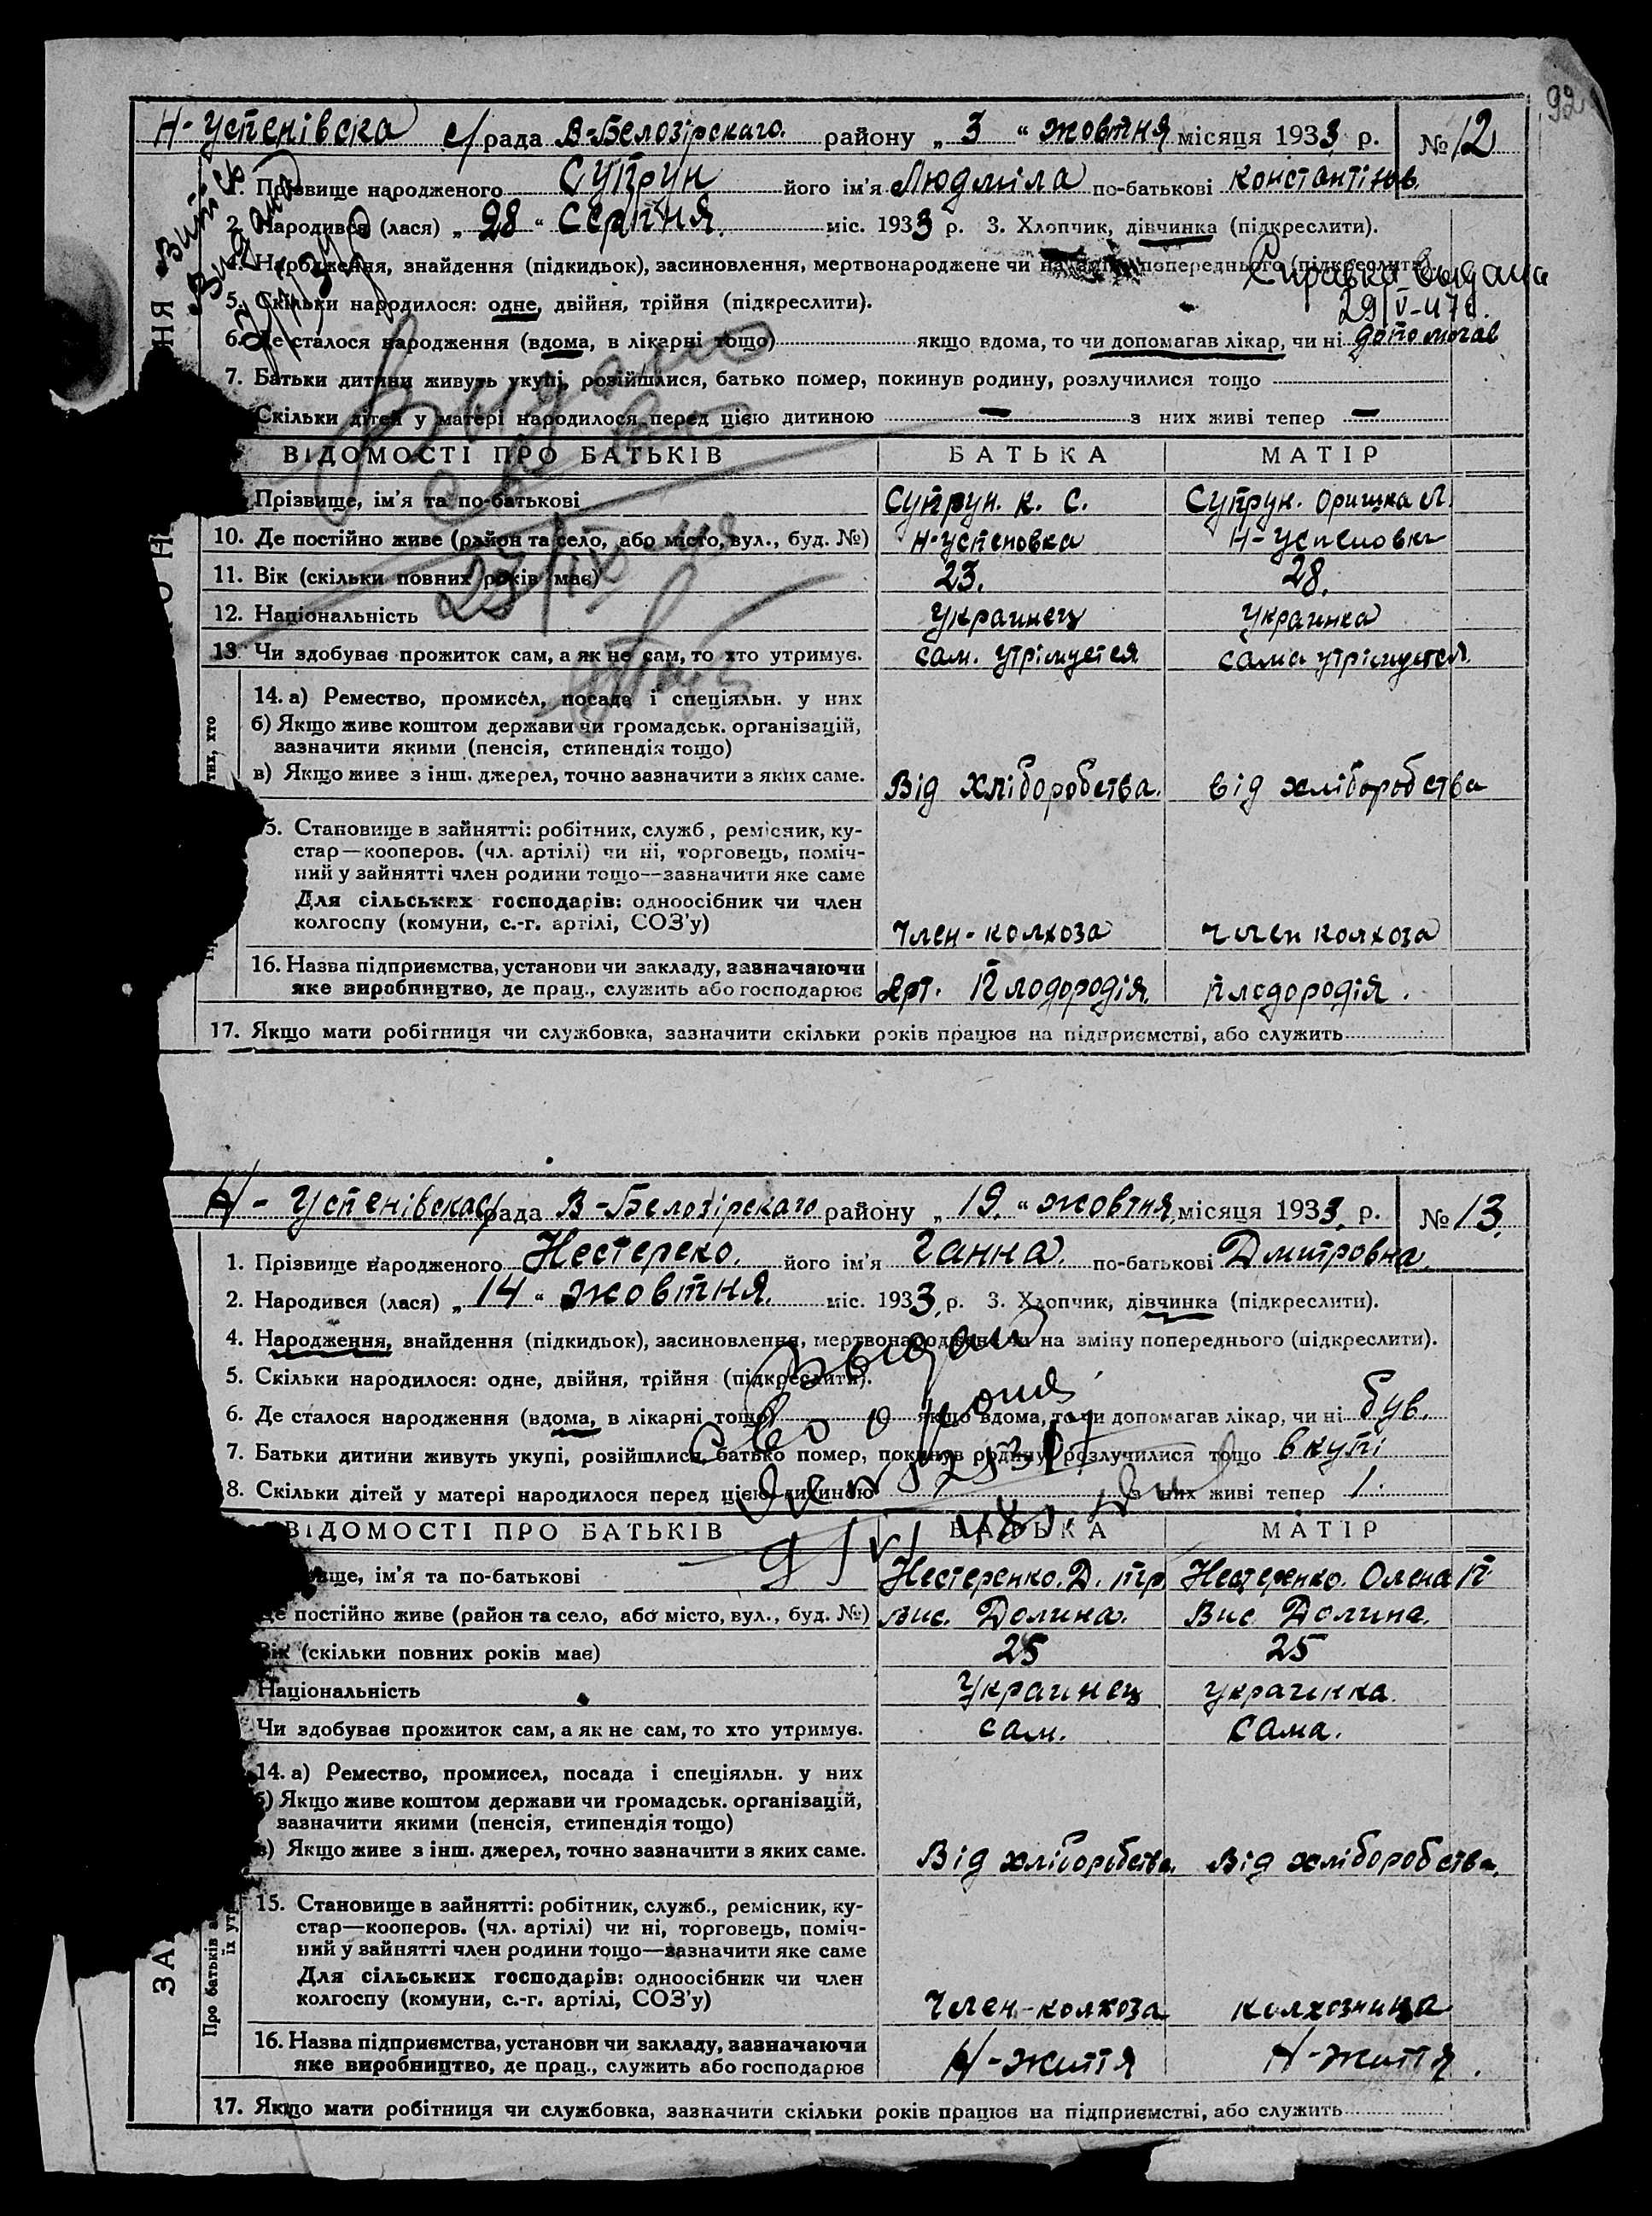 92
Н-Успенівска с/рада В-Белозірскаго. району „3“ жовтня місяця 1933 р. № 12
1. Прізвище народженого Супрун його ім'я Людміла по-батькові Константінов.
2. Народився (лася) „28“ Серпня. міс. 1933 р. 3. Хлопчик, дівчинка (підкреслити).
Народження, знайдення (підкидьок), засиновлення, мертвонароджене чи на зміну попереднього (підкреслити)
Справка выдана
29/V-47г.
5. Скільки народилося: одне, двійня, трійня (підкреслити).
6. Де сталося народження (вдома, в лікарні тощо) якщо вдома, то чи допомагав лікар, чи ні допомогав
7. Батьки дитини живуть укупі, розійшлися, батько помер, покинув родину, розлучилися тощо
Скільки дітей у матері народилося перед цією дитиною — з них живі тепер —
ВІДОМОСТІ ПРО БАТЬКІВ БАТЬКА МАТІР
Прізвище, ім'я та по-батькові Супрун. К. С. Супрун. Оришка Л.
10. Де постійно живе (район та село, або місто, вул., буд. №) Н-Успеновка Н-Успеновка
11. Вік (скільки повних років має) 23. 28.
12. Національність Украинец Украинка
13. Чи здобуває прожиток сам, а як не сам, то хто утримує. Сам. утрімуется сама утрімуется
14. а) Ремество, промисел, посада і спеціяльн. у них
б) Якщо живе коштом держави чи громадськ. організацій,
зазначити якими (пенсія, стипендія тощо)
в) Якщо живе з інш. джерел, точно зазначити з яких саме. Від хліборобства. від хліборобства
5. Становище в зайнятті: робітник, служб, ремісник, ку-
стар—кооперов. (чл. артілі) чи ні, торговець, поміч-
ний у зайнятті член родини тощо—зазначити яке саме
Для сільських господарів: одноосібник чи член
колгоспу (комуни, с.-г. артілі, СОЗ'у) Член-колхоза член колхоза
16. Назва підприємства, установи чи закладу, зазначаючи
яке виробництво, де прац., служить або господарює Арт. Плодородія. плодородія.
17. Якщо мати робітниця чи службовка, зазначити скільки років працює на підприємстві, або служить
Н-Успенівска с/рада В-Белозірскаго району „19.“ жовтня місяця 1933. р. № 13.
1. Прізвище народженого Нестереко. його ім'я Ганна. по-батькові Дмитровна.
2. Народився (лася) „14“ жовтня. міс. 1933. р. 3. Хлопчик, дівчинка (підкреслити).
4. Народження, знайдення (підкидьок), засиновлення, мертвонароджене чи на зміну попереднього (підкреслити).
5. Скільки народилося: одне, двійня, трійня (підкреслити).
6. Де сталося народження (вдома, в лікарні тощо) якщо вдома, то чи допомагав лікар, чи ні був.
7. Батьки дитини живуть укупі, розійшлися, батько помер, покинув родину, розлучилися тощо вкупі
8. Скільки дітей у матері народилося перед цією дитиною 1 з них живі тепер 1.
ВІДОМОСТІ ПРО БАТЬКІВ БАТЬКА МАТІР
ище, ім'я та по-батькові Нестеренко. Д. Нестеренко. Олена П
Де постійно живе (район та село, або місто, вул., буд. №) Вис. Долина. Вис. Долина.
Вік (скільки повних років має) 25 25
Національність Украинец украинка.
Чи здобуває прожиток сам, а як не сам, то хто утримує. Сам. Сама.
14. а) Ремество, промисел, посада і спеціяльн. у них
б) Якщо живе коштом держави чи громадськ. організацій,
зазначити якими (пенсія, стипендія тощо)
в) Якщо живе з інш. джерел, точно зазначити з яких саме. Від хліборобства. Від хліборобства.
15. Становище в зайнятті: робітник, служб., ремісник, ку-
стар—кооперов. (чл. артілі) чи ні, торговець, поміч-
ний у зайнятті член родини тощо—зазначити яке саме
Для сільських господарів: одноосібник чи член
колгоспу (комуни, с.-г. артілі, СОЗ'у) Член-колхоза колхозница
16. Назва підприємства, установи чи закладу, зазначаючи
яке виробництво, де прац., служить або господарює Н-життя Н-життя.
17. Якщо мати робітниця чи службовка, зазначити скільки років працює на підприємстві, або служить